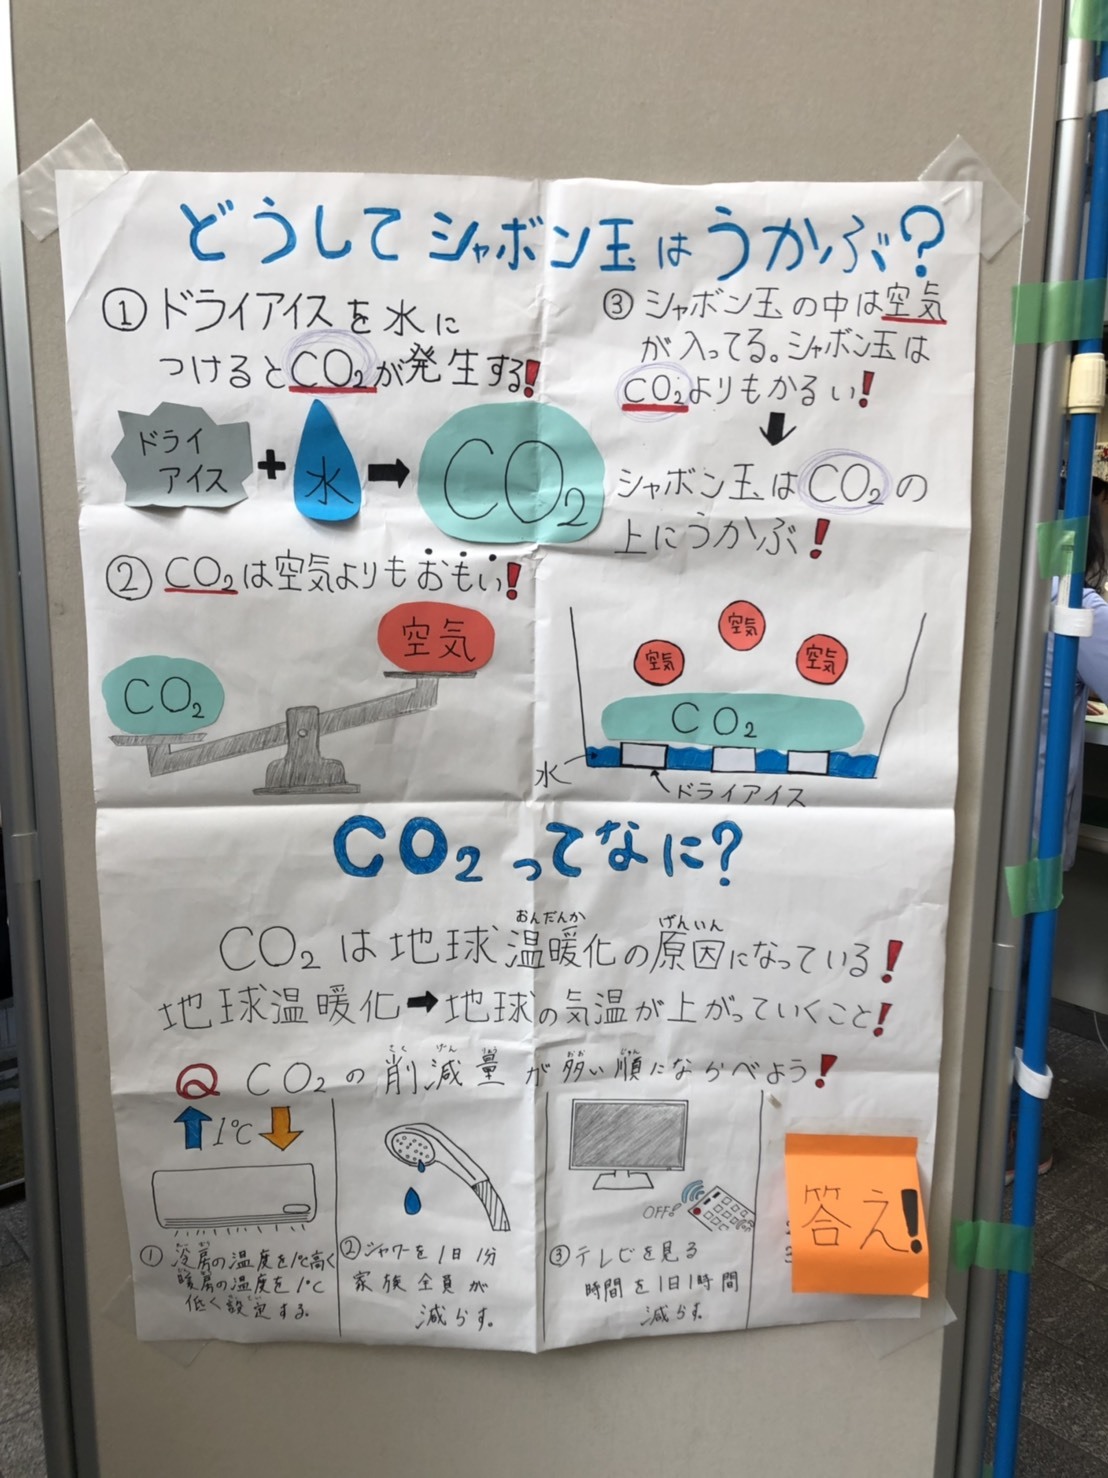 どうしてシャボン玉はうかぶ?
①ドライアイスを水に
つけるとCO₂が発生する!
ドライ
アイス
+
水
➡
CO₂
②CO₂は空気よりもおもい!
CO₂
空気
③シャボン玉の中は空気
が入ってる。シャボン玉は
CO₂よりもかるい!
⬇
シャボン玉はCO₂の
上にうかぶ!
空気
空気
空気
CO₂
水
ドライアイス
CO₂ってなに?
おんだんか げんいん
CO₂は地球温暖化の原因になっている!
地球温暖化➡地球の気温が上がっていくこと!
さくげんりょう おお じゅん
Q CO₂の削減量が多い順にならべよう!
1℃
①冷房の温度を1℃高く
暖房の温度を1℃
低く設定する。
②シャワーを1日1分
家族全員が
減らす。
OFF!
③テレビを見る
時間を1日1時間
減らす。
答え!